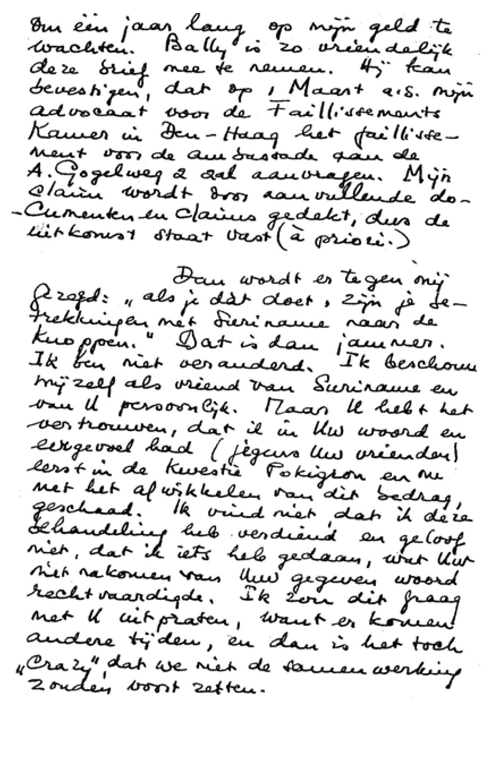 Om één jaar lang op mijn geld te
wachten. Bally is zo vriendelijk
deze brief mee te nemen. Hij kan
bevestigen, dat op 1 Maart a.s. mijn
advocaat voor de Faillissements
Kamer in Den-Haag het faillisse-
ment voor de ambassade aan de
A. Gogelweg 2 zal aanvragen. Mijn
claim wordt door aanvullende do-
-cumenten en claims gedekt, dus de
uitkomst staat vast (à priori.)
Dan wordt er tegen mij
gezegd: „als je dàt doet, zijn je be-
trekkingen met Suriname naar de
knoppen." Dat is dan jammer.
Ik ben niet veranderd. Ik beschouw
mijzelf als vriend van Suriname en
van U persoonlijk. Maar U hebt het
vertrouwen, dat ik in Uw woord en
eergevoel had (jegens Uw vrienden)
eerst in de kwestie Pokigron en nu
met het afwikkelen van dit bedrag,
geschaad. Ik vind niet, dat ik deze
behandeling heb verdiend en geloof
niet, dat ik iets heb gedaan, wat Uw
niet nakomen van Uw gegeven woord
rechtvaardigde. Ik zou dit graag
met U uitpraten, want er komen
andere tijden, en dan is het toch
„Crazy", dat we niet de samenwerking
zouden voort zetten.